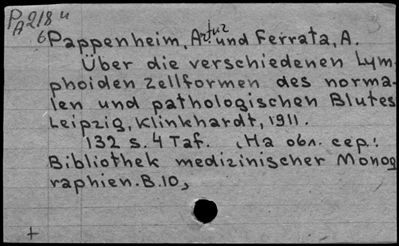 PA 218 u
6 Pappenheim, Artur und Ferrata, A.
Über die verschiedenen Lym-
phoiden Zellformen des norma-
len und pathologischen Blutes
Leipzig, Klinkhardt, 1911.
132 S. 4 Taf. (На обл. сер.:
Bibliothek medizinischer Monog
raphien. B. 10,
+